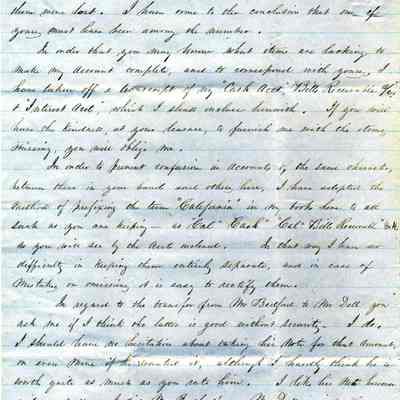 them were lost. I have come to the conclusion that one of
yours, must have been among the number.
In order that you may know what items are lacking to
make my account complete, and to correspond with yours, I
have taken off a transcript of my "Cash Acct" "Bills Receivable"
& "Interest Acct", which I shall inclose herewith. If you will
have the kindness, at your leisure, to furnish me with the items
missing, you will oblige me.
In order to prevent confusion in accounts of the same character,
between those in your hand and others here, I have adopted the
method of prefixing the term "California" in my books here to all
such as you are keeping - as Cal "Cash" "Cal" Bills Receivable" &c &c
as you will see by the Acct inclosed. In that way I have no
difficulty in keeping them entirely separate, and in case of
mistake, or omission, it is easy to rectify them.
In regard to the transfer from Mr Bedford to Mr Dell you
ask me if I think the latter is good without security. I do.
I should have no hesitation about taking his Note for that amount,
or even more if he wanted it, although I hardly think he is
worth quite as much as you rate him. I like his Note however